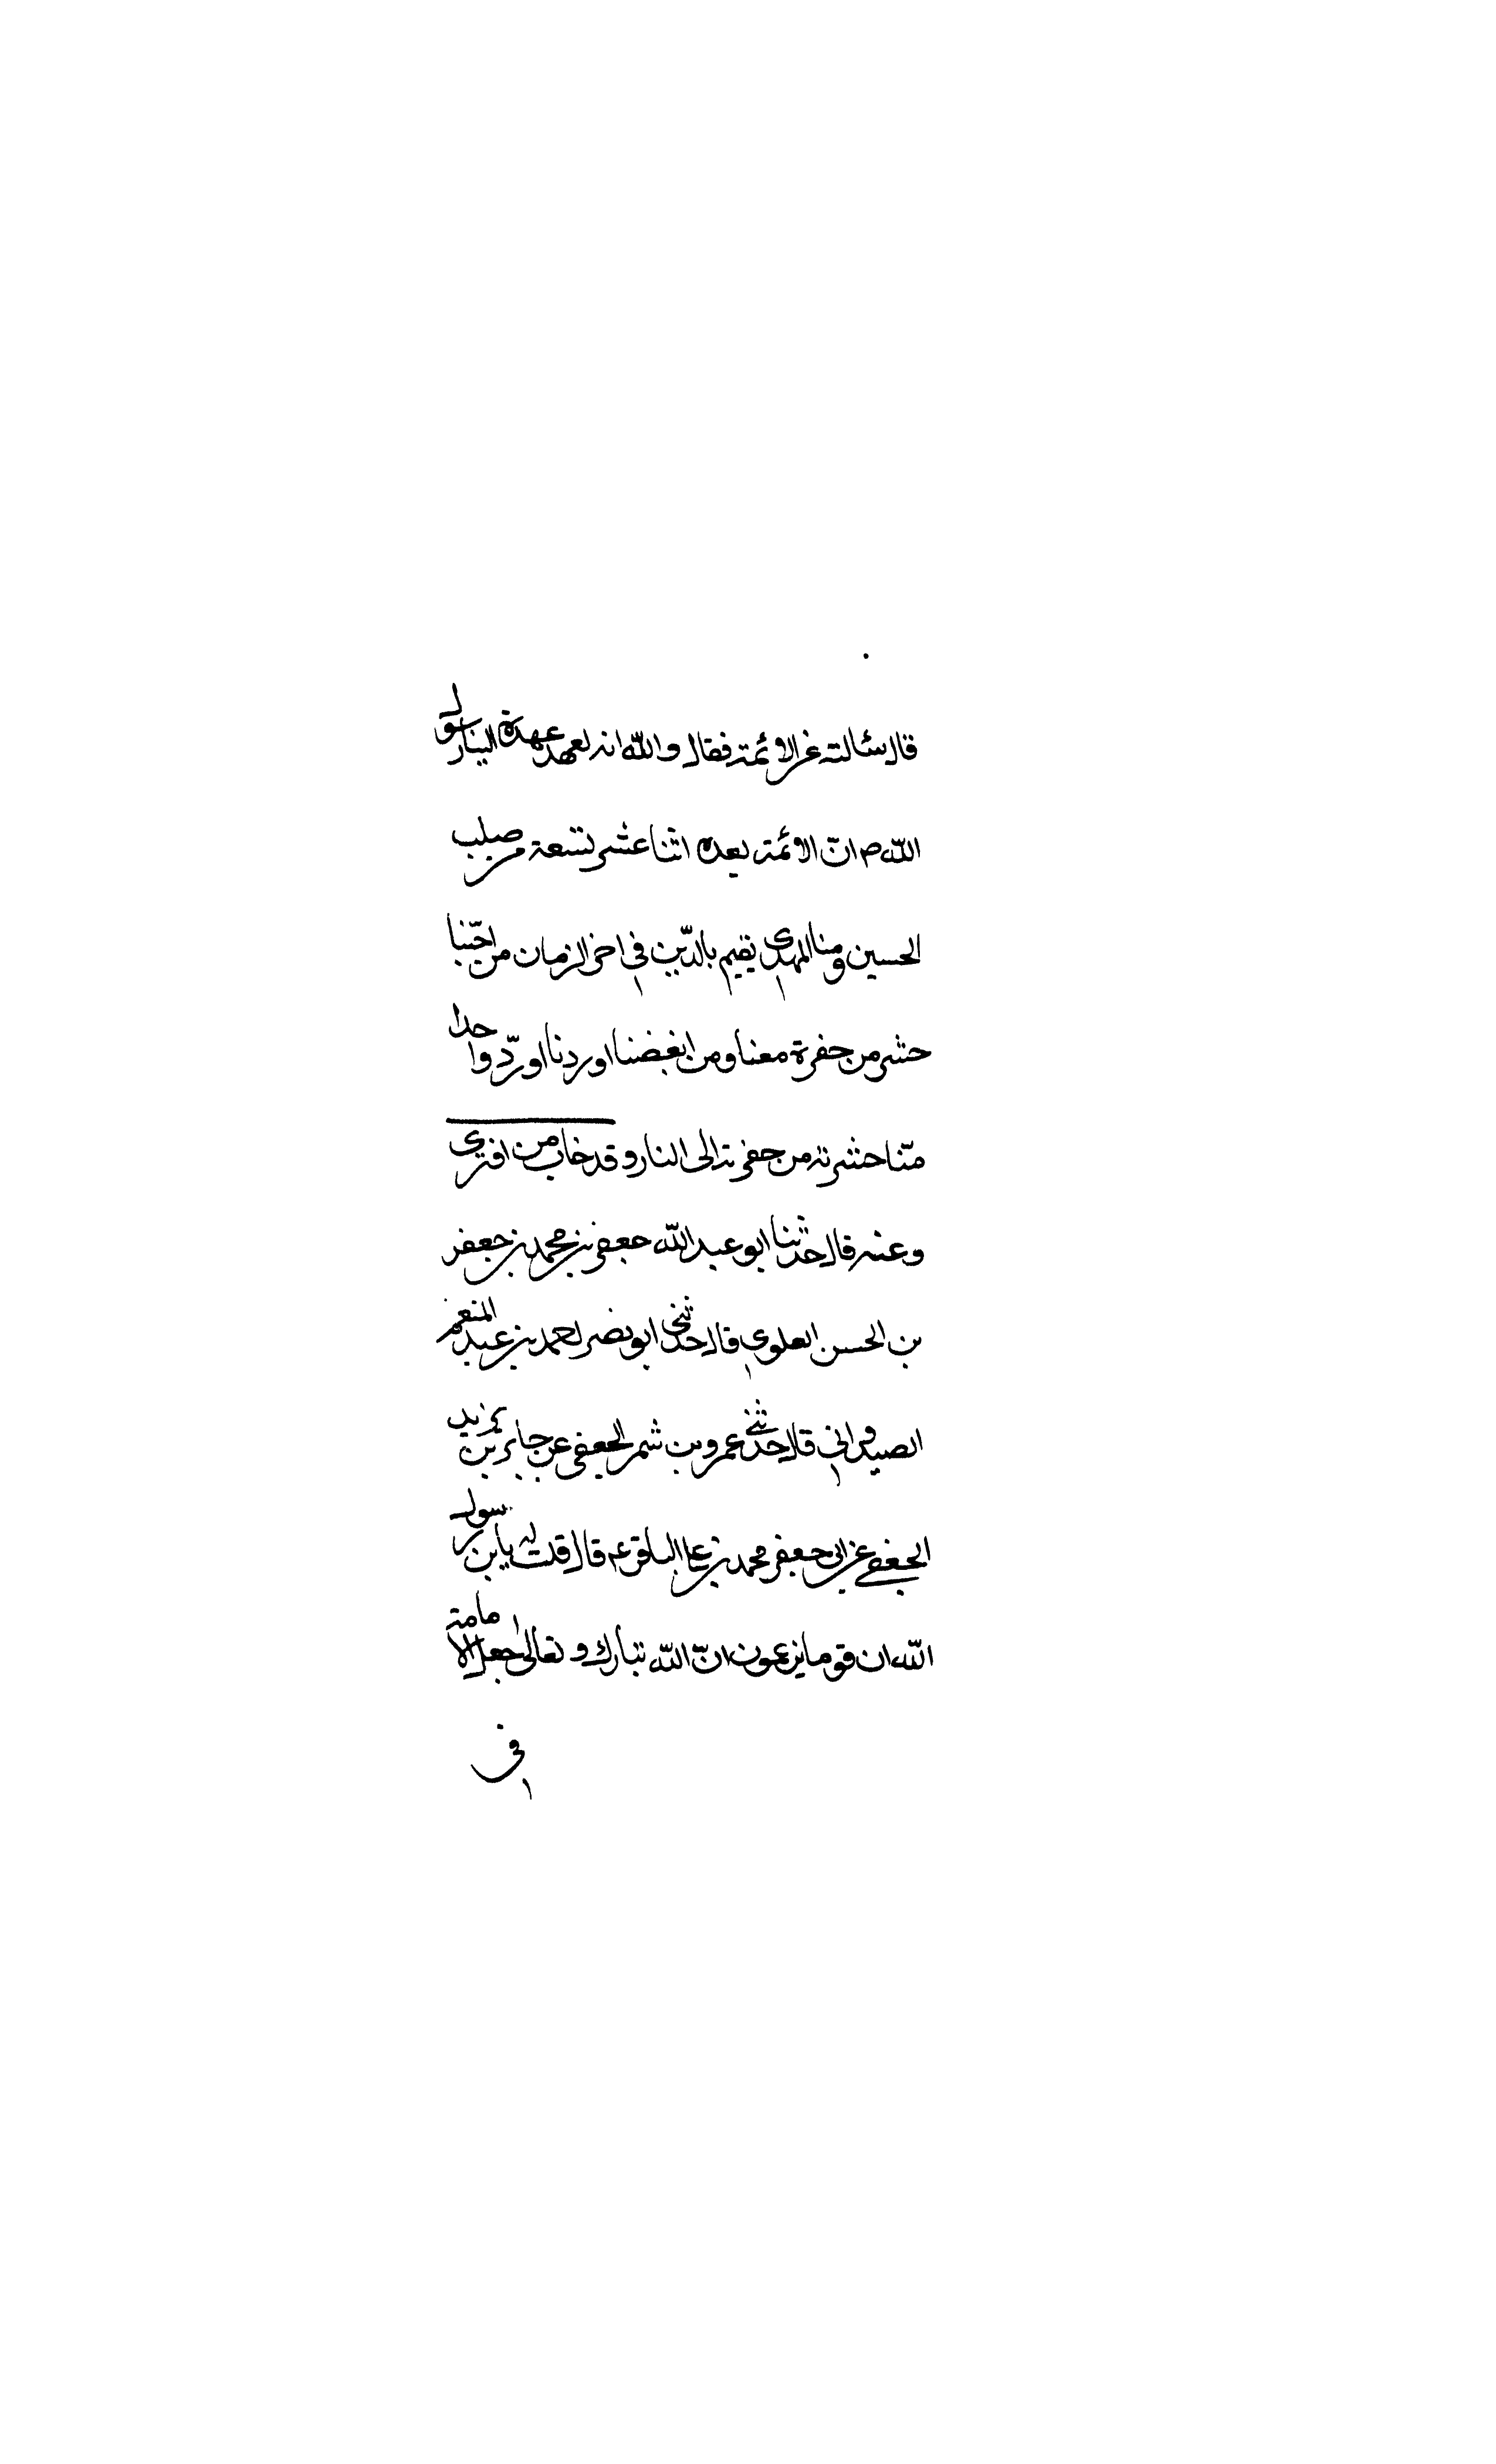 قال سئالته عن الائمة فقال والله انه لعهد عهده الينا رسول
الله ص انّ الائمة بعده اثنا عشر تسعة من صلب
الحسين ومنا المهدى يقيم بالدّين في اخر الزمان من احبّنا
حشر من حفرة معنا ومن ابغضنا اوردنا اوردّ واحدا
منّا حشر ته من حفرته الى النار وقد خاب من افترى
وعنه قال حدثنا ابو عبد الله جعفر بن محمد بن جعفر
بن الحسن العلوي قال حدثني ابو نصر احمد بن عبد المنعم
الصيداوي قال حدثني عمرو بن شمر الجعفي عن جابر بن يزيد
الجعفي عن ابي جعفر محمد بن علي الباقر ع م قال قلت له يابن رسول
الله ان قوما يزعمون انّ الله تبارك و تعالى جعل الامامة
في